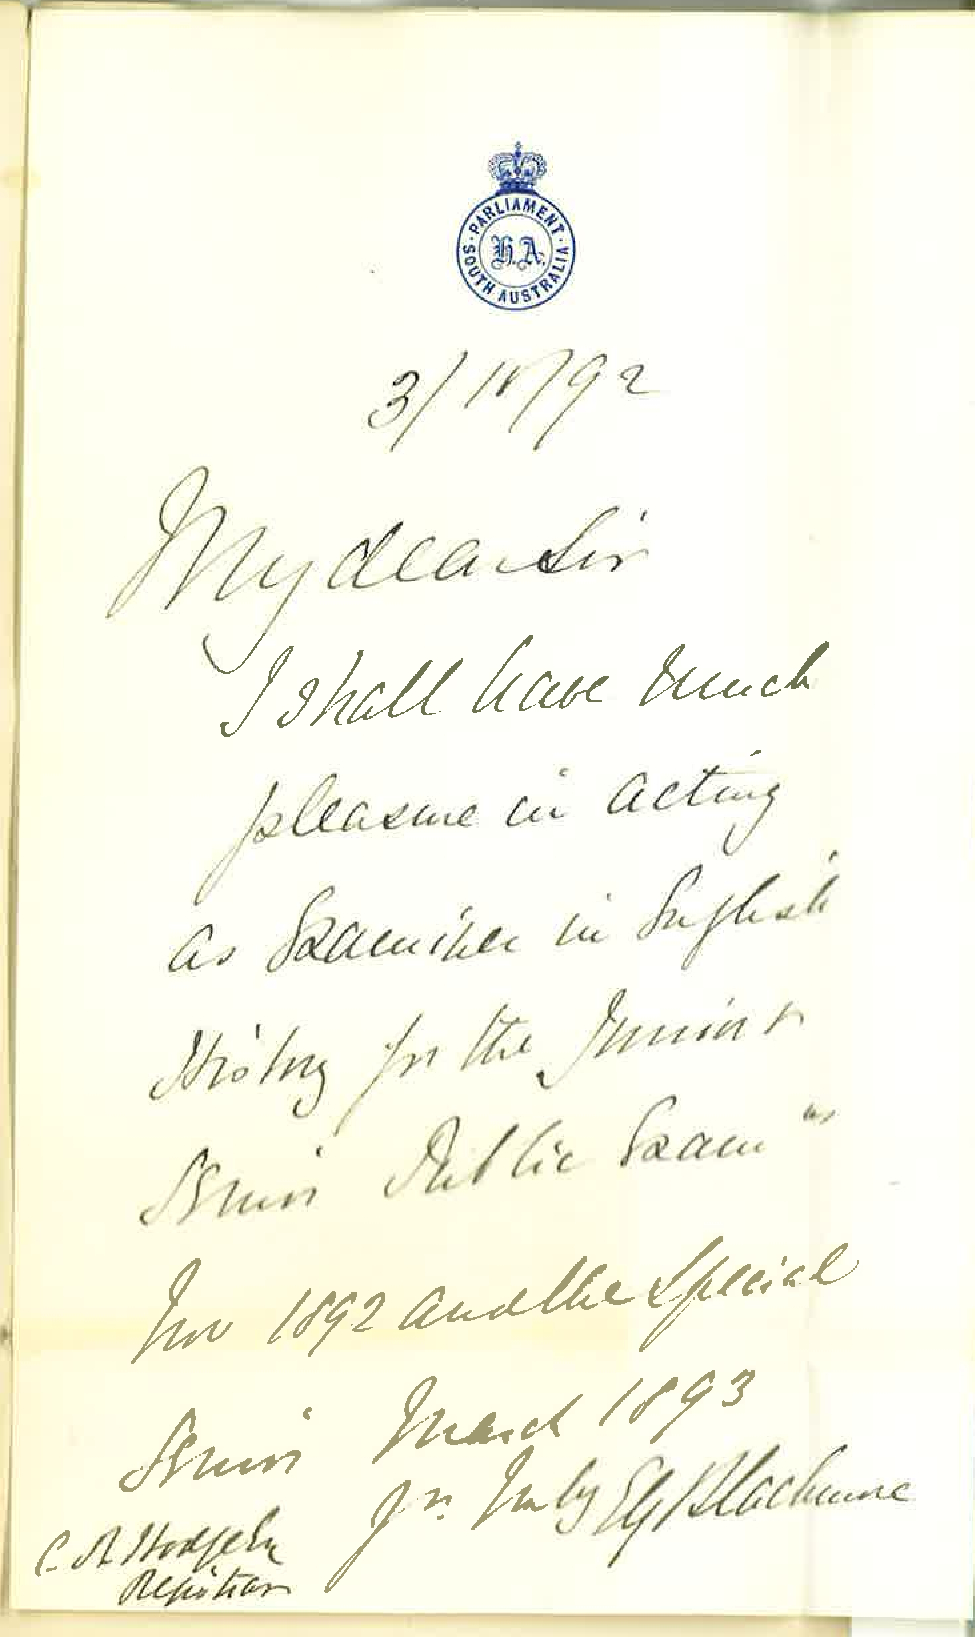 PARLIAMENT
H.A.
SOUTH AUSTRALIA
3/10/92
My dear Sir
I shall have much
pleasure in acting
as Examiner in English
History for the Junior &
Senior Public Exam ns
Nov 1892 and the Special
Senior March 1893
Yrs truly EG Blackmore
C. R. Hodge Esq
Registrar